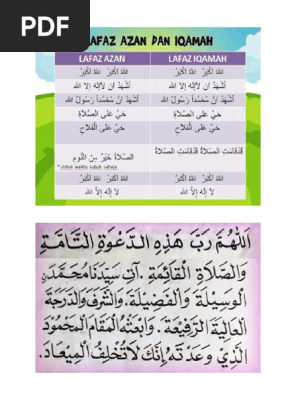 PDF
LAFAZ AZAN DAN IQAMAH
LAFAZ AZAN LAFAZ IQAMAH
اللهُ أَكْبَرُ اللهُ أَكْبَرُ اللهُ أَكْبَرُ اللهُ أَكْبَرُ
أَشْهَدُ ان لاَ إِلهَ إلا الله أَشْهَدُ ان لاَ إِلهَ إلا الله
أَشْهَدُ انَّ مُحَمَّداً رَسُوْلُ الله أَشْهَدُ انَّ مُحَمَّداً رَسُوْلُ الله
حَيَّ عَلى الصَّلاَةِ حَيَّ عَلى الصَّلاَةِ
حَيَّ عَلى الْفَلاَحِ حَيَّ عَلى الْفَلاَحِ
الصَّلاَةُ خَيْرٌ مِنَ النَّومِ قَدْقَامَتِ الصَّلاَةُ قَدْقَامَتِ الصَّلاَةُ
* Untuk waktu subuh sahaja.
اللهُ أَكْبَرُ اللهُ أَكْبَرُ اللهُ أَكْبَرُ اللهُ أَكْبَرُ
لاَ إِلَه إلاَّ الله لاَ إِلَه إلاَّ الله
اَللّٰهُمَّ رَبَّ هٰذِهِ الدَّعْوَةِ التَّامَّةِ
وَالصَّلَاةِ الْقَائِمَةِ. آتِ سَيِّدَنَا مُحَمَّدَنِ
الْوَسِيْلَةَ وَالْفَضِيْلَةَ. وَالشَّرَفَ وَالدَّرَجَةَ
الْعَالِيَةَ الرَّفِيْعَةَ. وَابْعَثْهُ الْمَقَامَ الْمَحْمُوْدَ
الَّذِيْ وَعَدْتَهُ إِنَّكَ لَا تُخْلِفُ الْمِيْعَادَ.